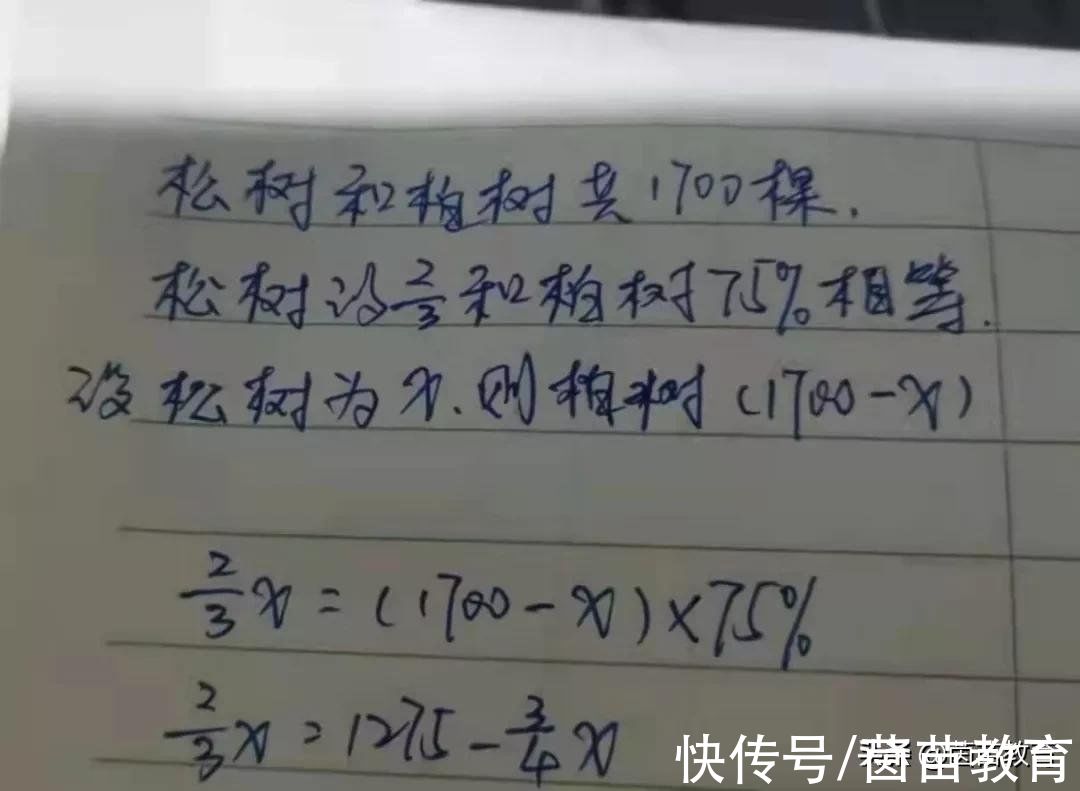 松树和柏树共1700棵.
松树的2/3和柏树75%相等.
设松树为x.则柏树(1700-x)
2/3x=(1700-x)×75%
2/3x=1275-3/4x
快传号/茵苗教育